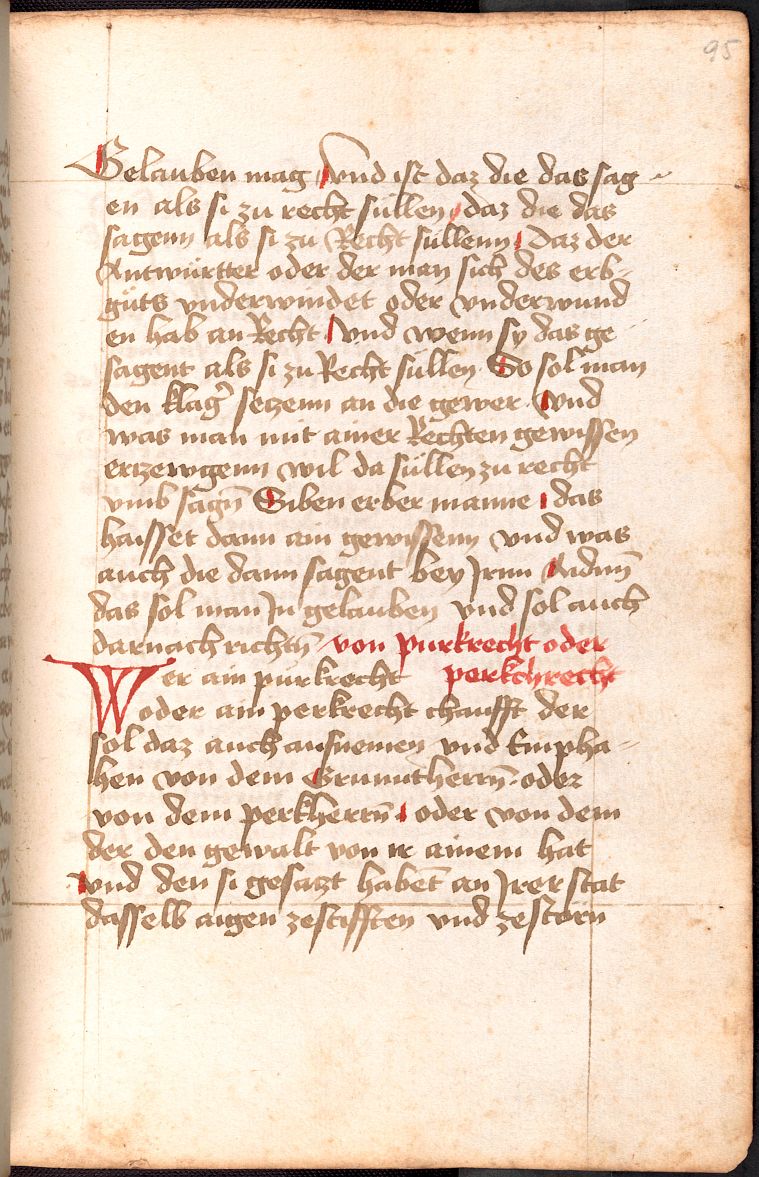 95
Gelauben mag / Vnd ist daz die das sag
en als si zu recht süllen / daz die das
sagenn als si zu Recht süllenn / Daz der
Antwürtter oder der man sich des erb-
güts vnderwindet oder vnderwund
en hab an Recht / Vnd wenn sy das ge
sagent als si zu Recht süllen So sol man
den klag̉ seczenn an die gewer . Vnd
was man mit ainer Rechten gewissen
erczewgenn wil da süllen zu recht
vmb sagn̄ Siben erber manne / das
haisset dann ain gewissenn vnd was
auch die dann sagent bey Jrnn Aidnn̄
das sol man Jn gelauben vnd sol auch
darnach richtn̄ von purkrecht oder
perkchrecht
Wer ain purkrecht
oder ain perkrecht chaufft der
sol daz auch aufnemen vnd Empha-
hen von dem Grunntherrn̄ . oder
von dem perkherrn̄ / oder von dem
der den gewalt von ir ainem hat
vnd den si gesaczt habent̄ an Jrer stat
dasselb aigen zestifften vnd zestörn